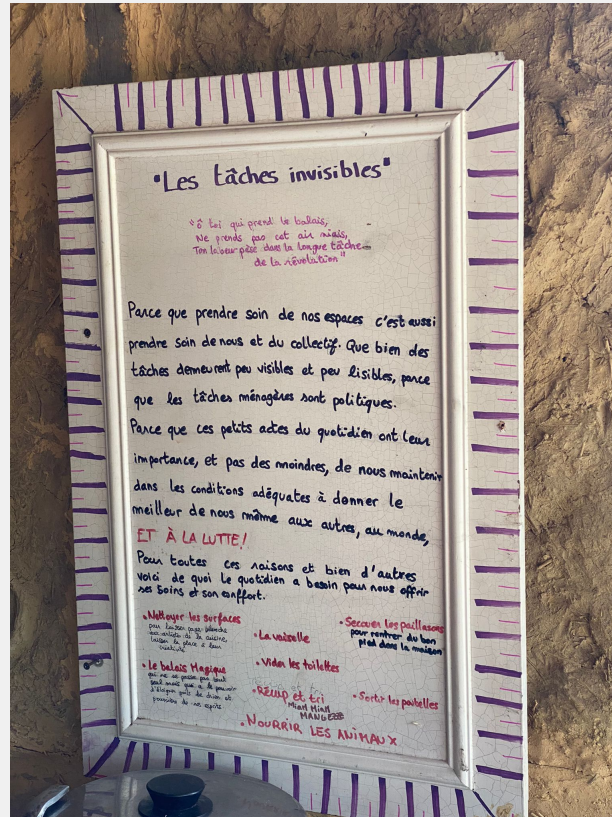 "Les tâches invisibles"
"ô toi qui prend le balais,
Ne prends pas cet air niais,
Ton labeur pèse dans la longue tâche
de la révolution"
Parce que prendre soin de nos espaces c'est aussi
prendre soin de nous et du collectif. Que bien des
tâches demeurent peu visibles et peu lisibles, parce
que les tâches ménagères sont politiques.
Parce que ces petits actes du quotidien ont leur
importance, et pas des moindres, de nous maintenir
dans les conditions adéquates à donner le
meilleur de nous même aux autres, au monde,
ET À LA LUTTE!
Pour toutes ces raisons et bien d'autres
voici de quoi le quotidien a besoin pour nous offrir
ses soins et son confort.
• Nettoyer les surfaces
pour laisser page blanche
aux artistes de la cuisine,
laisser la place à leur
créativité
• La vaisselle
• Secouer les paillasons
pour rentrer du bon
pied dans la maison
• Le balais Magique
qui ne se passe pas tout
seul mais qui a le pouvoir
d'éloigner poils de chien et
poussière de nos esprits
• Vider les toilettes
• Récup et tri
MIAM MIAM
• Sortir les poubelles
• NOURRIR LES ANIMAUX